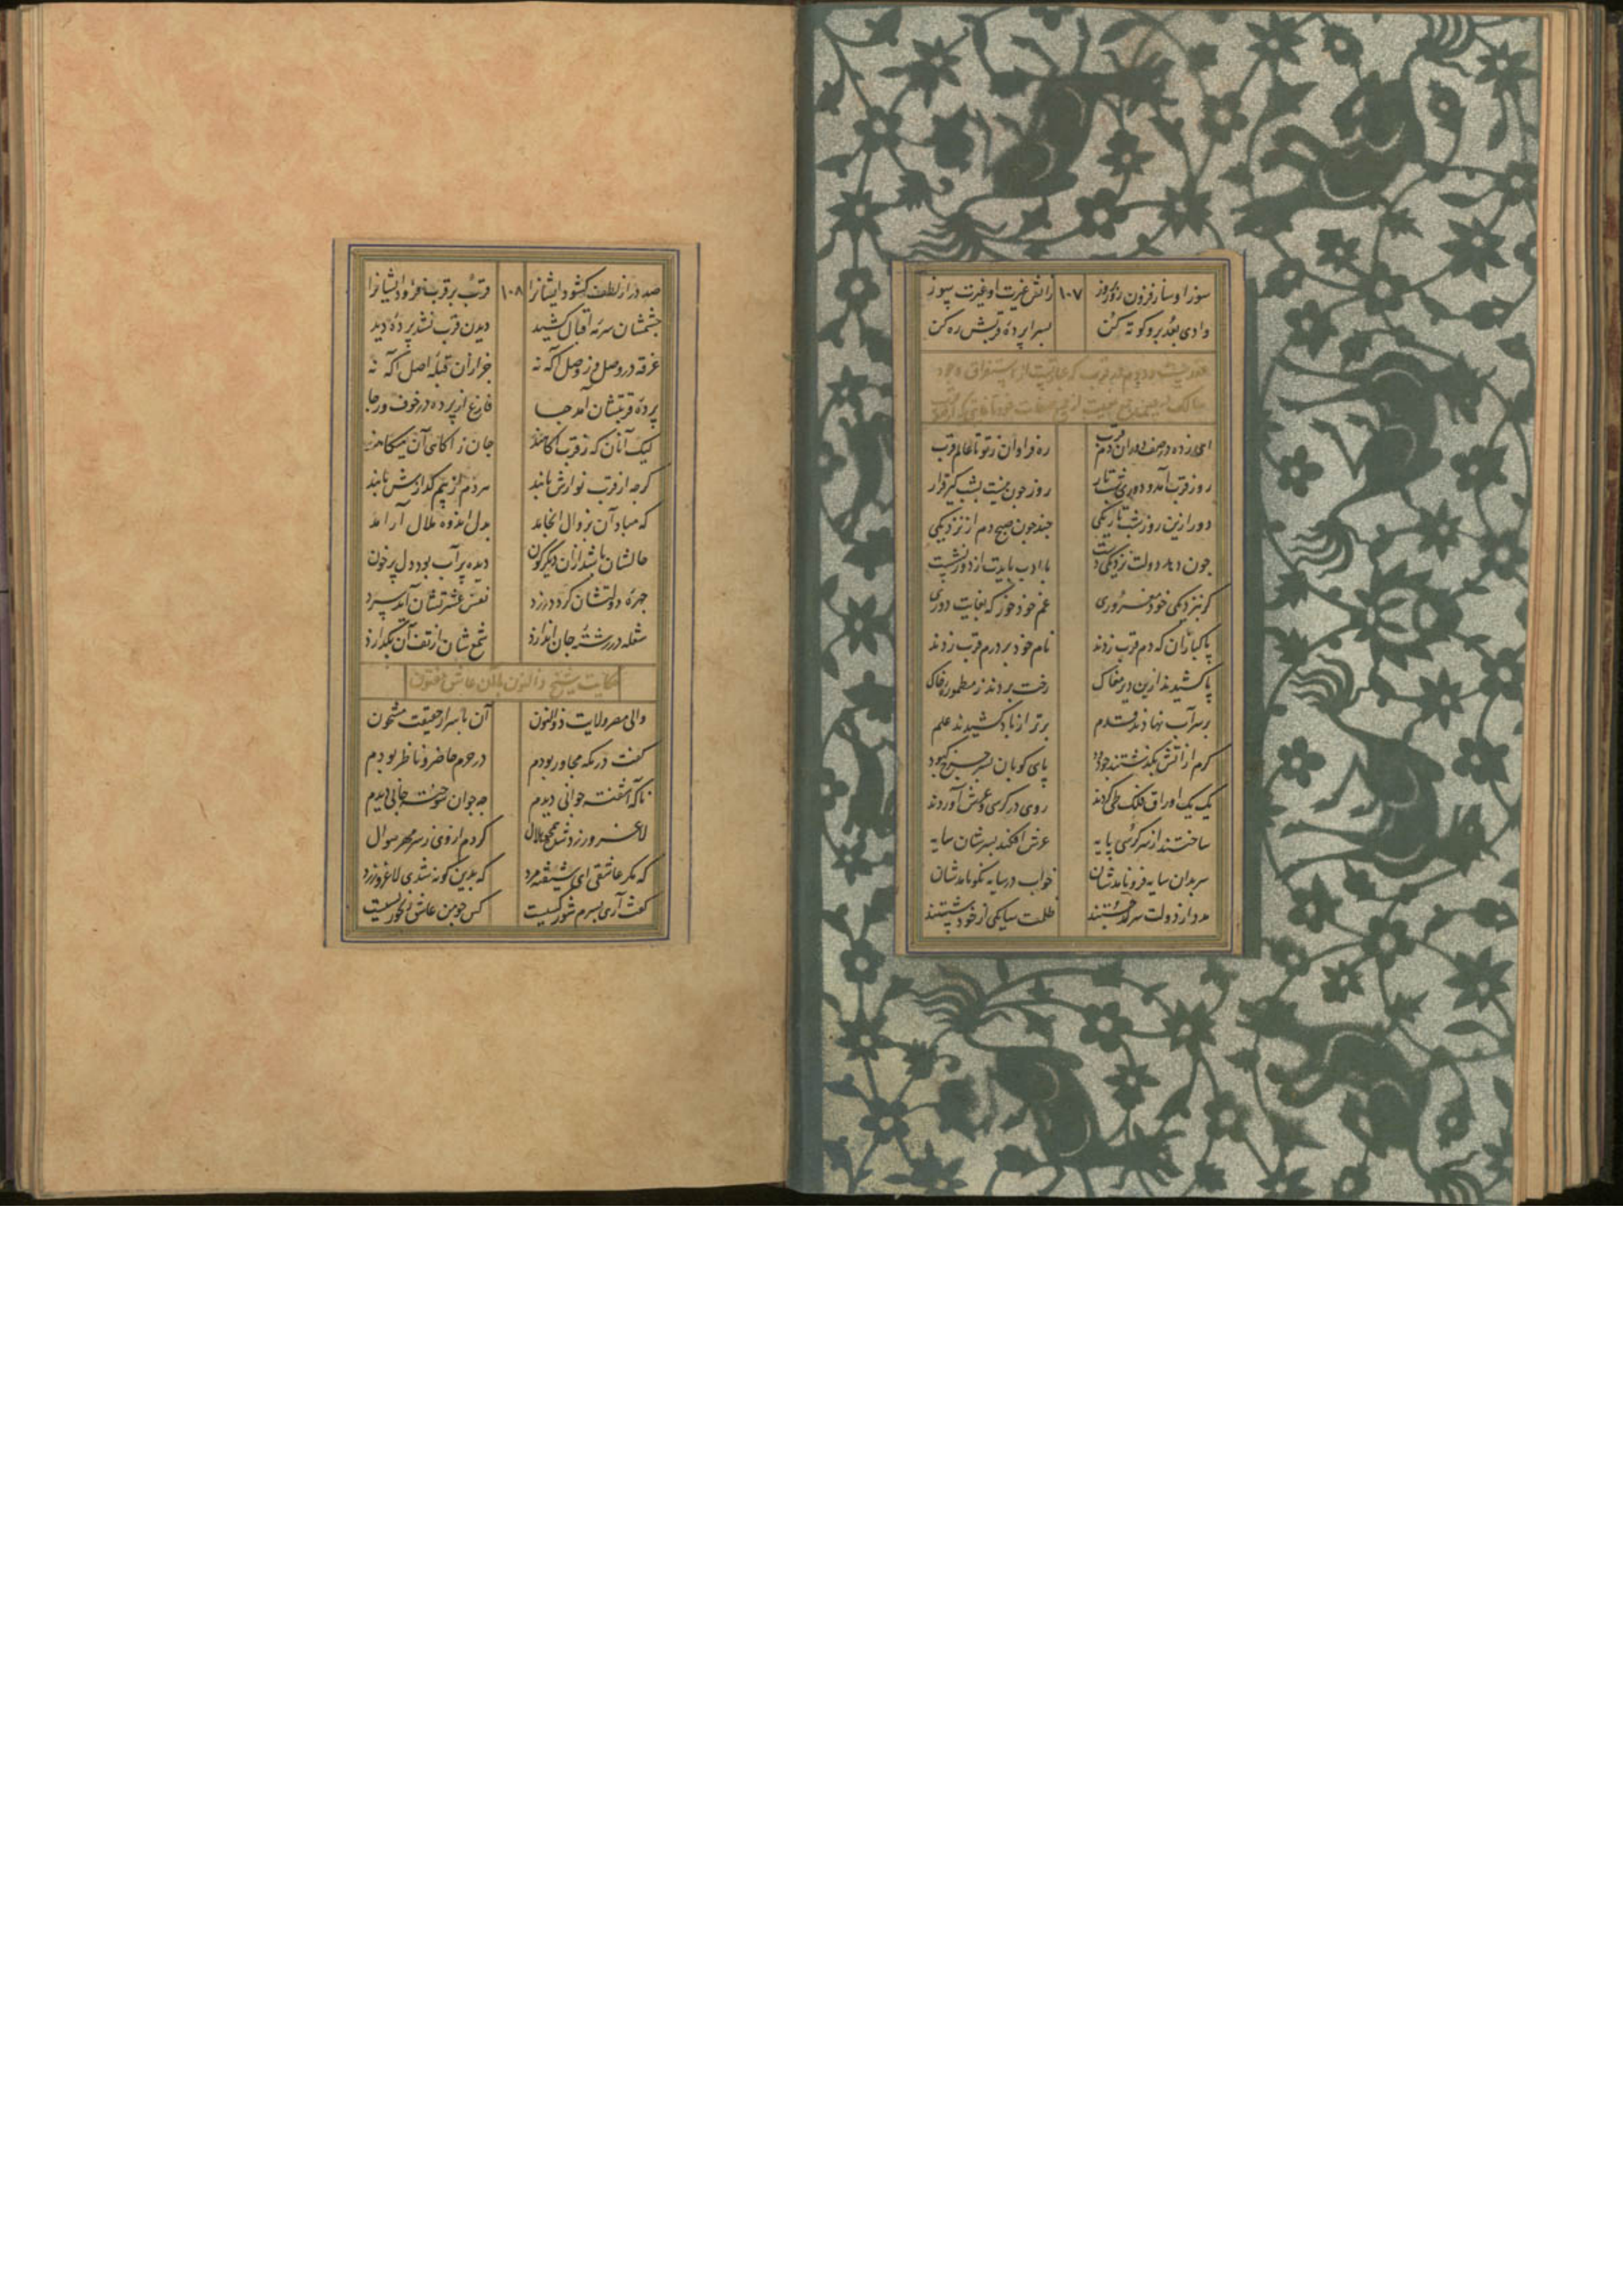 سوز او ساز فزون روز بروز ۱۰۷ ز آتش غیرت او غیرت سوز
وادی بعد برو کوته کن بسراپرده قربش ره کن
در قرب که عبارتست از استغراق وجود
سالک در عین جمع بغیبت از جمیع صفات خود تا غایتی که از
ای زده در صف دوران دم قرب ره فراوان ز تو تا عالم قرب
روز قرب آمد و دوری شب تار روز جون نیست بشب کیر قرار
دور ازین روز بشب تاریکی جند جون صبح دم از نزدیکی
جون دهد دولت نزدیکی دست با ادب بایدت از دور نشست
کر بنزدیکی خود مغروری غم خود خور که بغایت دوری
پاکبازان که دم قرب زدند نام خود بر درم قرب زدند
پا کشیدند ازین دیر مغاک رخت بردند ز مطموره خاک
بر سر آب نهادند قدم برتر از باد کشیدند علم
کرم از آتش بکذشتند جو دود پای کوبان بسر جرخ کبود
یک بیک اوراق فلک طی کردند روی در کرسی و عرش آوردند
ساختند از سر کرسی پایه عرش افکند بسرشان سایه
سر بدان سایه فرو نامدشان خواب در سایه نکو نامدشان
مدد از دولت سرمد جستند ظلمت سایکی از خود شستند
صد در از لطف کشود ایشانرا ۱۰۸ قرب بر قرب فزود ایشانرا
جشمشان سرمه اقبال کشید دیدن قرب نشد پرده دید
غرقه در وصل و ز وصل آکه نه جز ازان قبله اصل آکه نه
پرده قربتشان آمد جا فارغ از پرده در خوف و رجا
لیک آنان که ز قرب آکاهند جان ز آکاهی آن میکاهند
کرجه از قرب نوازش یابند هر دم از بیم کدازش یابند
که مبادا آن بزوال انجامد بدل اندوه ملال آرامد
حالشان باشد ازان دیکرکون دیده پر آب بود دل پر خون
جهره دولتشان کردد زرد نفس عشرتشان آید سرد
شعله در رشته جان اندازد شمع شان از تف آن بکدازد
حکایت شیخ ذوالنون با آن عاشق مفتون
والی مصر ولایت ذوالنون آن باسرار حقیقت مشحون
کفت در مکه مجاور بودم در حرم حاضر و ناظر بودم
ناکه آشفته جوانی دیدم جه جوان سوخته جانی دیدم
لاغر و زرد شده همجو هلال کردم از وی ز سر مهر سوال
که مکر عاشقی ای شیفته مرد که بدین کونه شدی لاغر و زرد
کفت آری بسرم شور کسیست کس جو من عاشق رنجور بسیست